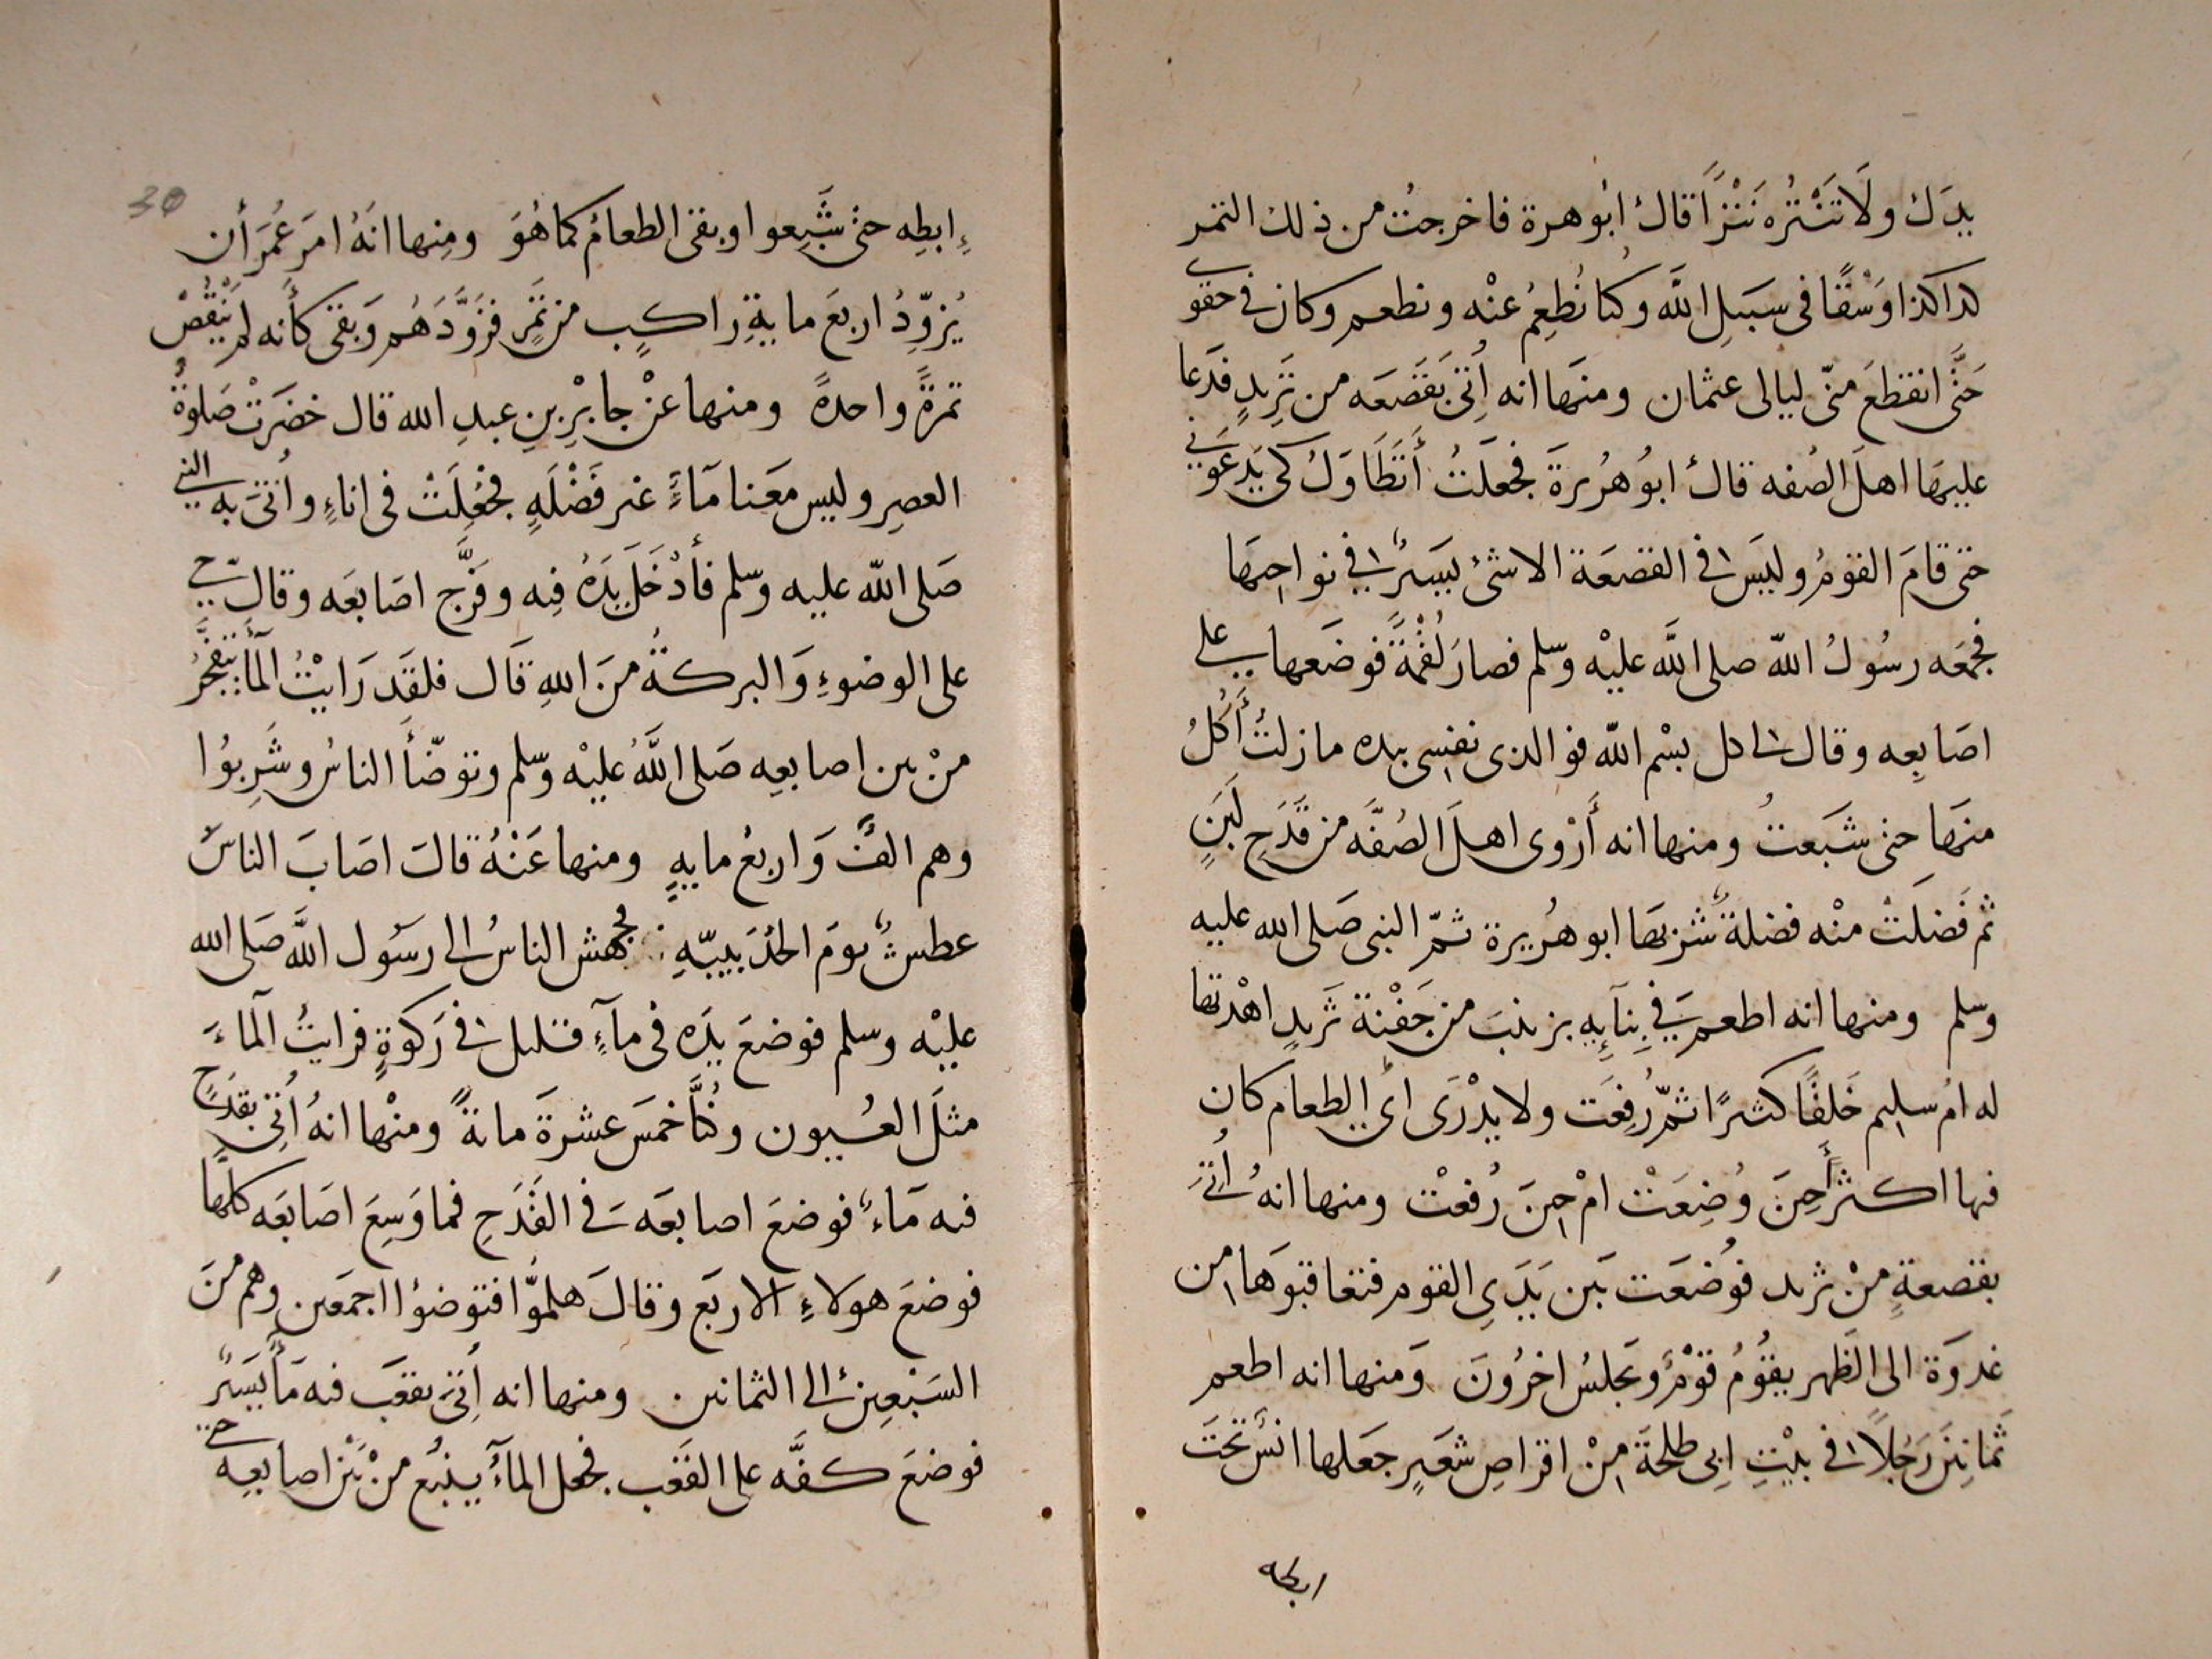 يدك ولا تنثره نثرًا قال ابو هرة فاخرجت من ذلك التمر
كذا كذا وسقًا في سبيل الله وكنا نُطعِمُ عنْه ونطعم وكان في حقوى
حتَّى انقطعَ منّى ليالى عثمان ومنها انه اُتىَ بقصعَه من ثريدٍ فدَعا
عليها اهلَ الصُفه قالَ ابوُ هُريرةَ فجعلتُ أتَطَاوَلُ كى يَدعَونى
حتى قامَ القومُ وليسَ فى القصعَة الا شئ يسيرٌ فى نواحيهَا
فجمعَه رسُولُ الله صلى الله عليْه وسلم فصارَ لُقْمةً فوضَعها على
اصَابِعِه وقال لى كل بسْم الله فوالذى نفسِى بيده ما زلتُ أَكُلُ
منها حتى شبَعتُ ومنها انه أَرْوى اهلَ الصُفَّه من قَدَحِ لَبَنٍ
ثم فَضلَتْ منْه فضلةٌ شربها ابو هُريرة ثمّ النبى صَلى الله عليه
وسلم ومنها انه اطعم فى بِنآئِهِ بزينبَ من جَفْنة ثَريدٍ اهْدتها
له امُ سليم خَلقًا كثيرًا ثمّ رُفِعَت ولا يدْرَى اىُّ الطعام كان
فيها اكثر أحِينَ وُضِعَتْ امْ حِينَ رُفعتْ ومنها انهُ اُتىَ
بقصعةٍ منْ ثريد فوُضعَت بَين يَدَىِ القوم فتعاقبوَها من
غدوَة الى الظهر يقوُمُ قوْمٌ وَيجلسُ اخرُونَ وَمنها انه اطعم
ثَمانِينَ رَجُلاً فى بيْتِ ابى طلحَةَ مِنْ اقراصِ شعيرٍ جعَلها انسٌ تحتَ
ابطه
اِبطِه حتىْ شَبِعوا وبقى الطعامُ كما هُوَ ومِنها انَهُ امرَ عُمَرَ أن
يُزوِّدُ اربعَ مايةِ راكبٍ من تمرٍ فزَوَّدَهُم وَبقى كأَنه لم يَنْقُصْ
تمرةً واحدةً ومنها عنْ جابرِ بنِ عبدِ الله قال حضرَتْ صَلوةُ
العصِر وليس معَنا مَآءٌ غير فَضْلَهٍ فجُعِلَتْ فى اناءٍ واُتىَ به النبى
صَلى الله عليه وسلم فأدْخَلَ يدَهُ فِه وفرَّج اصَابعَه وقال حى
على الوضوءِ وَالبركةُ منَ اللهِ قَال فلقَد رَايْتُ المآءَ يتفجَّرُ
منْ بين اصابعِه صَلى اللهُ عليْه وسلم وتوضّأ الناسُ وشَرِبوُا
وهم الفٌ وَاربعُ مايهٍ ومنها عَنْهُ قالَ اصَابَ الناسَ
عطسٌ يومَ الحُدَيبيّهِ فجهش الناسُ الى رسَول اللهَ صَلى الله
عليْه وسلم فوضعَ يدَه فى مآءٍ قليل فى رَكوةٍ فرايتُ المآءَ
مثلَ العُيون وكُنَّا خمسَ عشرةَ مائةً ومنْها انهُ اُتىَ بقدَحٍ
فيه مَاءٌ فوضعَ اصابعَه فى القَدَحِ فما وَسِعَ اصَابعَه كلها
فوضعَ هولاءِ الاربَع وقالَ هلموّا فتوضوُا اجمعين وهم منَ
السَبْعِين الى الثمانين ومنها انه اُتىَ بقعَب فيه مآءٌ يَسيرٌ
فوضعَ كفَّه على القعَب فجعل المآءُ ينبُع منْ بَيْن اصابعِه حتى